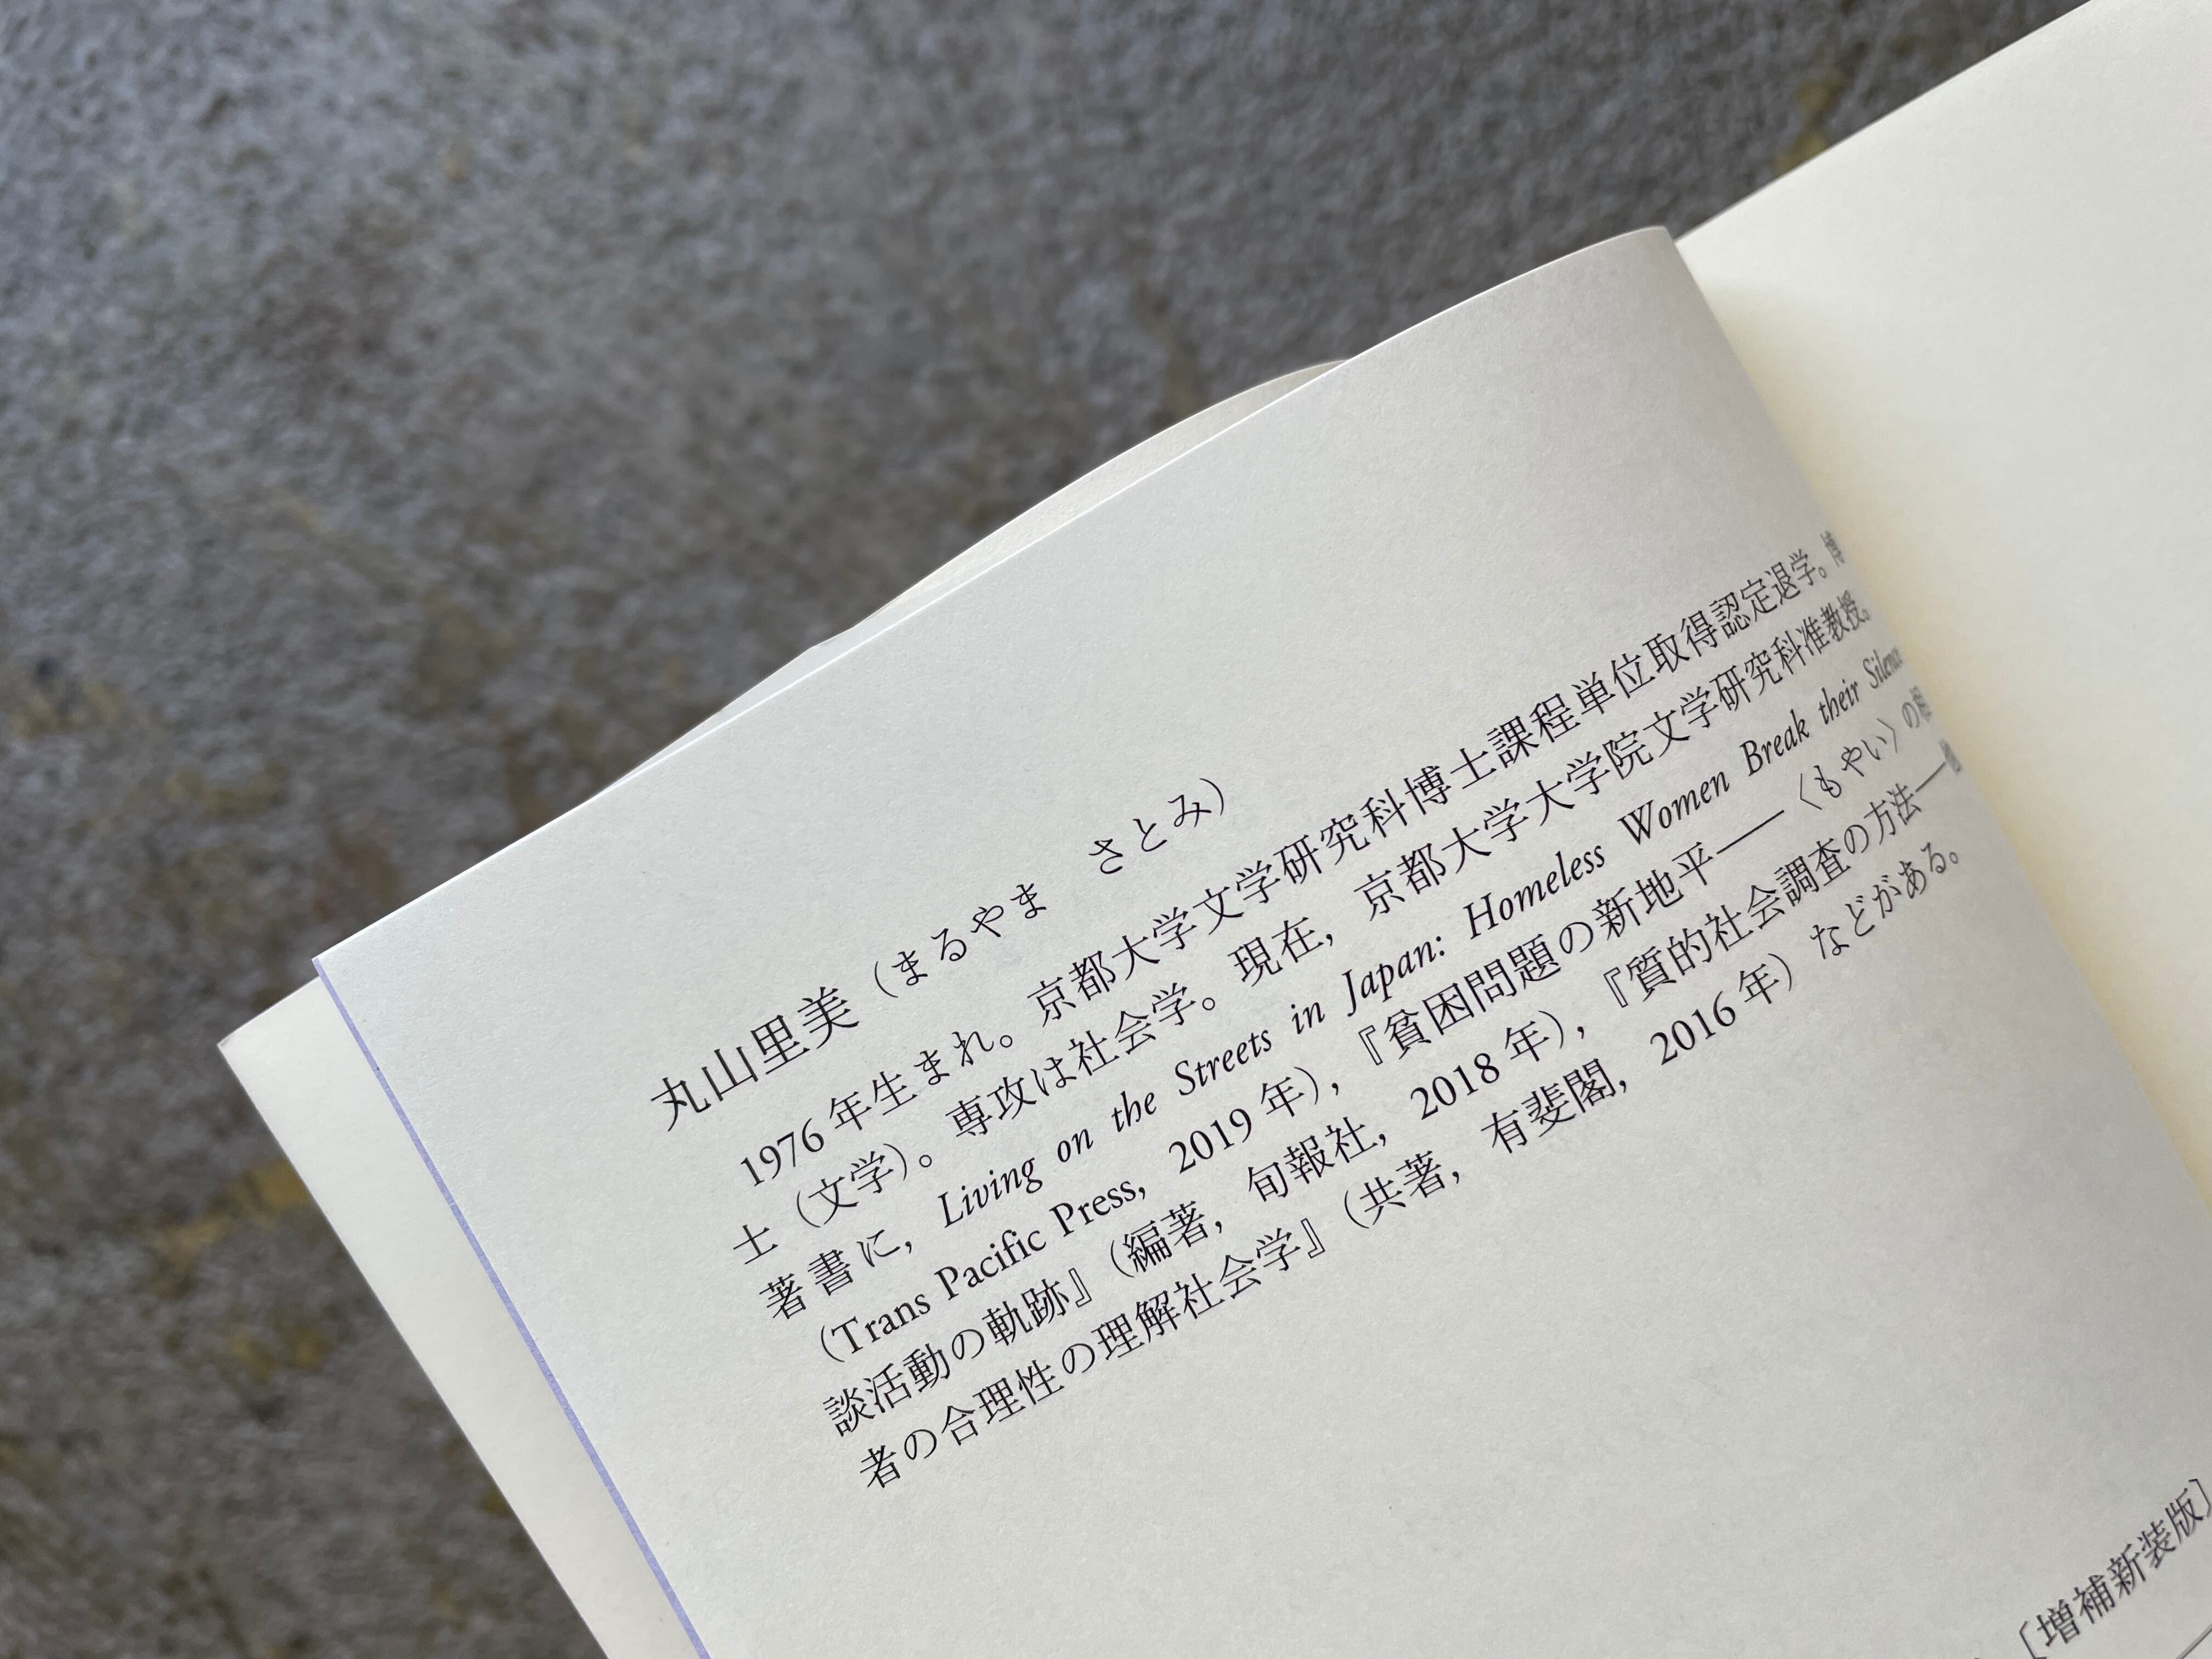 丸山里美（まるやま　さとみ）
1976年生まれ。京都大学文学研究科博士課程単位取得認定退学。博
士（文学）。専攻は社会学。現在，京都大学大学院文学研究科准教授。
著書に，Living on the Streets in Japan: Homeless Women Break their
（Trans Pacific Press, 2019年），『貧困問題の新地平――〈もやい〉の
談活動の軌跡』（編著，旬報社，2018年），『質的社会調査の方法――
者の合理性の理解社会学』（共著，有斐閣，2016年）などがある。
〔増補新装版〕